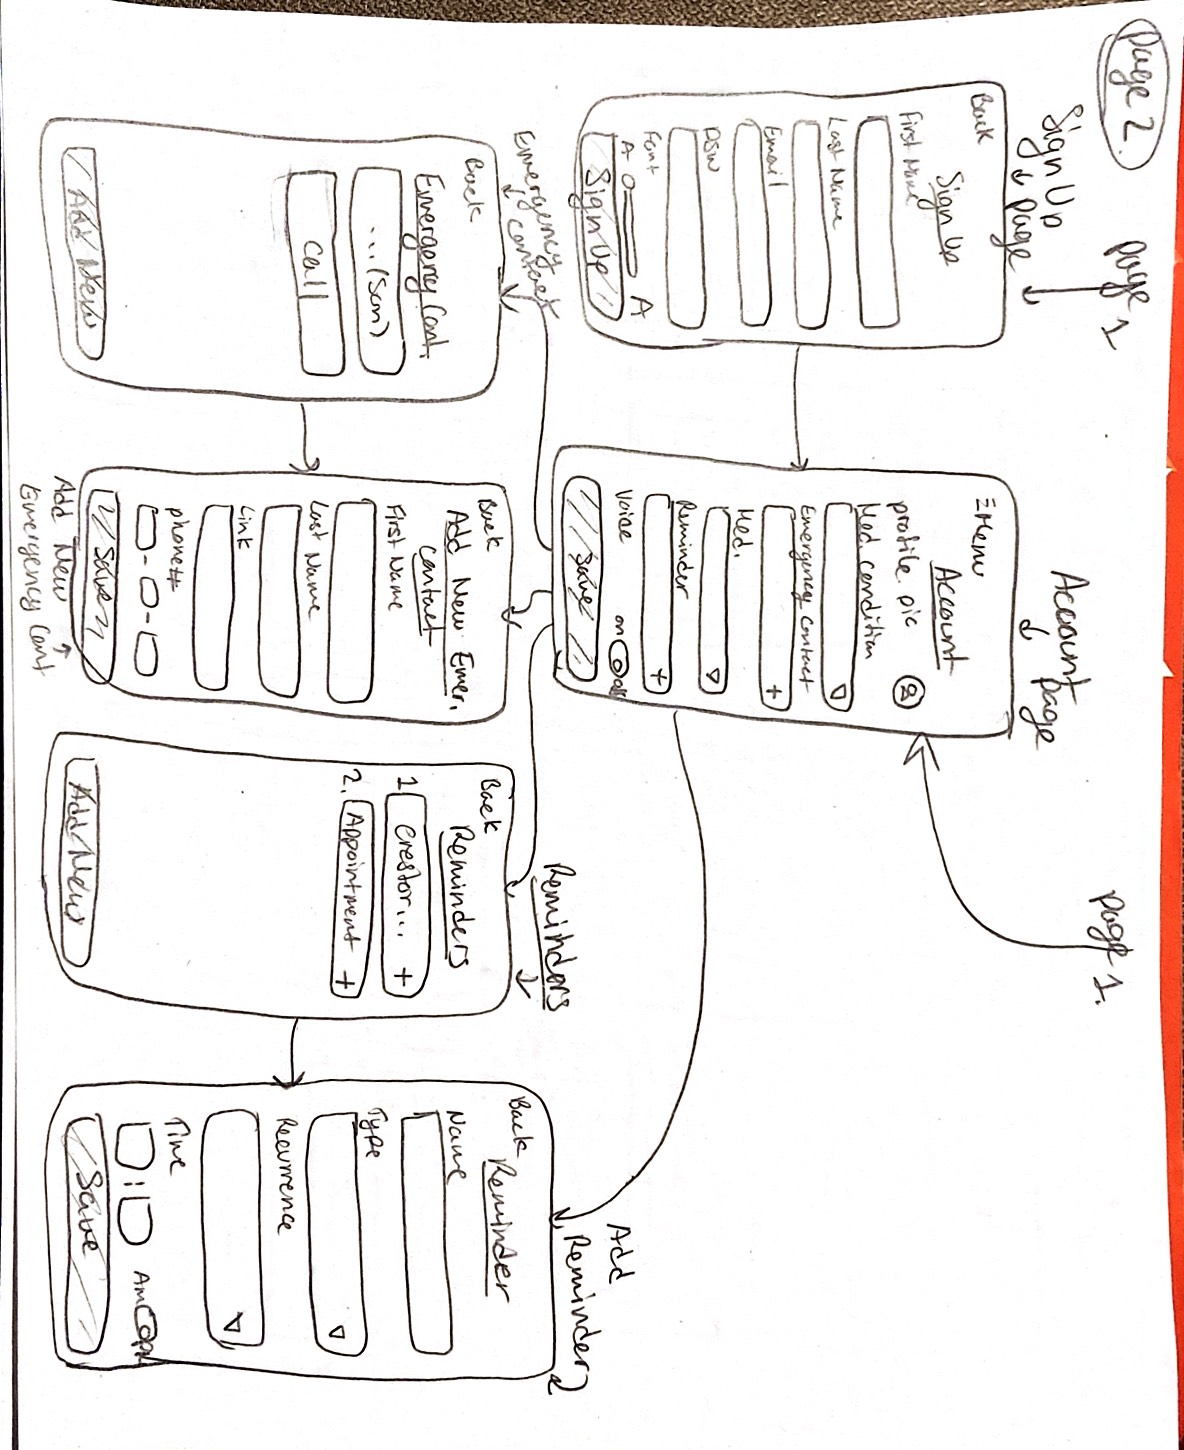 Page 2.
Page 1
Sign Up
Page
Back
Sign Up
First Name
Last Name
Email
PSW
Font
A A
Sign Up
Account
Page
Page 1.
≡ Menu
Account
profile pic
Med. condition
Emergency contact
+
Med.
Reminder
+
Voice on off
Save
Emergency
Contact
Back
Emergency Cont
...(Son)
Call
Add New
Back
Add New Emer.
Contact
First Name
Last Name
Link
phone#
- -
Save
Add New
Emergency Cont
Reminders
Back
Reminders
1. Crestor... +
2. Appointment +
Add New
Add
Reminder
Back
Reminder
Name
Type
Recurrence
Time
: AM PM
Save